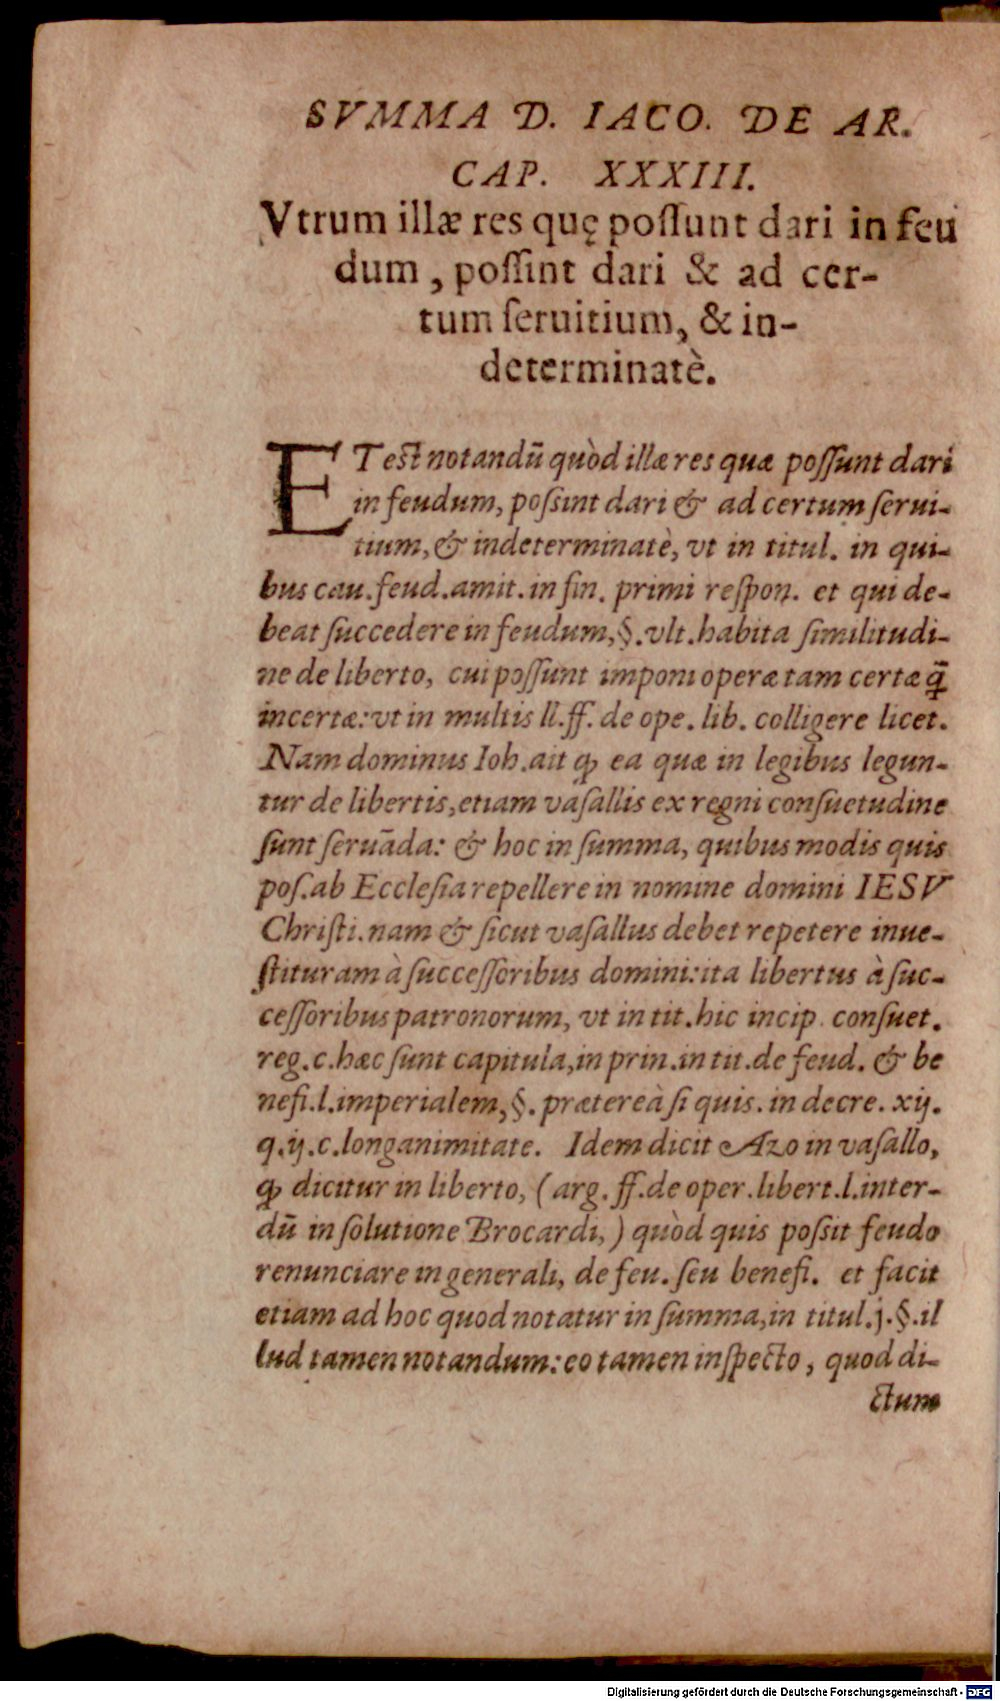 SVMMA D. IACO. DE AR.
CAP. XXXIII.
Vtrum illæ res quę poſſunt dari in feu
dum, poſſint dari & ad cer-
tum ſeruitium, & in-
determinatè.
ET est notandũ quòd illæ res quæ poſſunt dari
in feudum, poſsint dari & ad certum ſerui-
tium, & indeterminatè, vt in titul. in qui-
bus cau. feud. amit. in fin. primi reſpon. et qui de-
beat ſuccedere in feudum, §. vlt. habita ſimilitudi-
ne de liberto, cui poſſunt imponi operæ tam certæ q̃
incertæ: vt in multis ll. ff. de ope. lib. colligere licet.
Nam dominus Ioh. ait ꝙ ea quæ in legibus legun-
tur de libertis, etiam vaſallis ex regni conſuetudine
ſunt ſeruãda: & hoc in ſumma, quibus modis quis
poſ. ab Eccleſia repellere in nomine domini IESV
Chriſti. nam & ſicut vaſallus debet repetere inue-
ſtituram à ſucceſſoribus domini: ita libertus à ſuc-
ceſſoribus patronorum, vt in tit. hic incip. conſuet.
reg. c. hæc ſunt capitula, in prin. in tit. de feud. & be
nefi. l. imperialem, §. prætereà ſi quis. in decre. xij.
q. ij. c. longanimitate. Idem dicit Azo in vaſallo,
ꝙ dicitur in liberto, (arg. ff. de oper. libert. l. inter-
dũ in ſolutione Brocardi,) quòd quis poſsit feudo
renunciare in generali, de feu. ſeu benefi. et facit
etiam ad hoc quod notatur in ſumma, in titul. j. §. il
lud tamen notandum: eo tamen inſpecto, quod di-
ctum
Digitalisierung gefördert durch die Deutsche Forschungsgemeinschaft - DFG